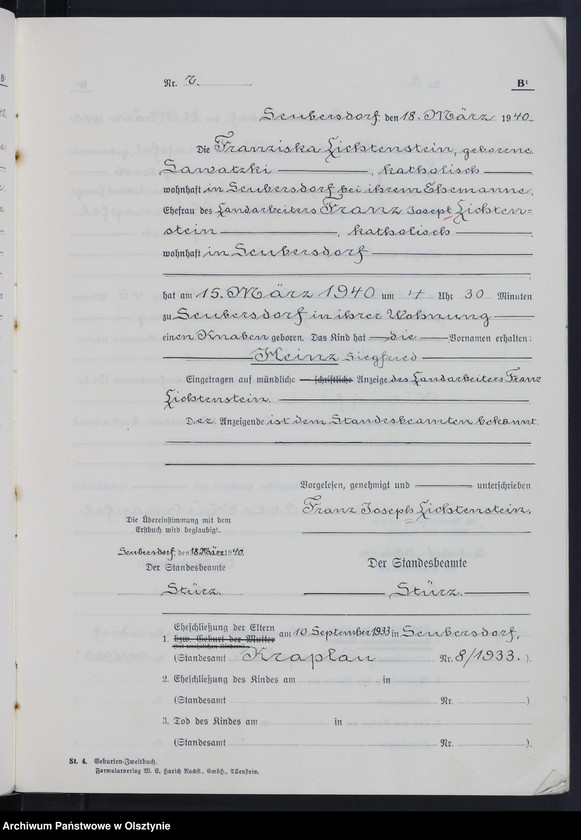 Nr. 7. B¹
Seubersdorf, den 18. März 1940.
Die Franziska Lichtenstein, geborene
Sawatzki, katholisch
wohnhaft in Seubersdorf bei ihrem Ehemanne,
Ehefrau des Landarbeiters Franz Joseph Lichten-
stein, katholisch
wohnhaft in Seubersdorf
hat am 15. März 1940 um 4 Uhr 30 Minuten
zu Seubersdorf in ihrer Wohnung
einen Knaben geboren. Das Kind hat die Vornamen erhalten:
Heinz Siegfried
Eingetragen auf mündliche schriftliche Anzeige des Landarbeiters Franz
Lichtenstein.
Der Anzeigende ist dem Standesbeamten bekannt.
Vorgelesen, genehmigt und unterschrieben
Franz Joseph Lichtenstein.
Die Übereinstimmung mit dem
Erstbuch wird beglaubigt.
Seubersdorf, den 18. März 1940.
Der Standesbeamte
Stürz.
Der Standesbeamte
Stürz.
1. Eheschließung der Eltern
bzw. Geburt der Mutter
am 10. September 1933 in Seubersdorf,
(Standesamt Kraplau Nr. 8/1933. ).
2. Eheschließung des Kindes am in
(Standesamt Nr. )
3. Tod des Kindes am in
(Standesamt Nr. ).
St. 4. Geburten-Zweitbuch.
Formularverlag W. E. Harich Nachf., GmbH., Allenstein.
Archiwum Państwowe w Olsztynie